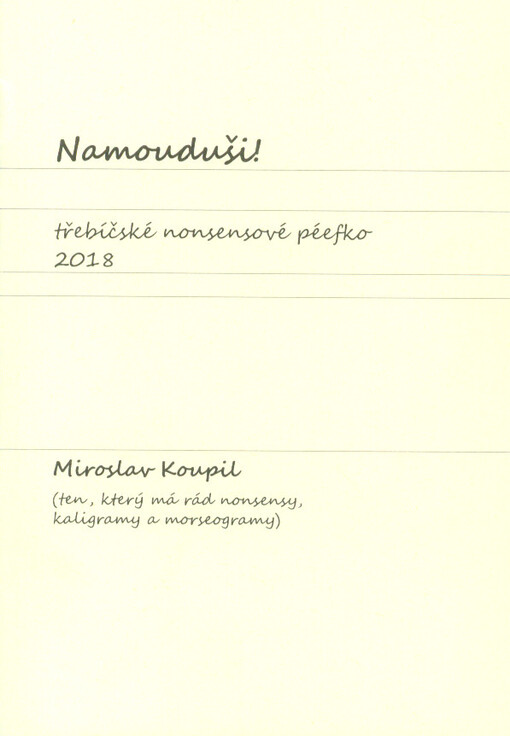 Namouduši!
třebíčské nonsensové péefko
2018
Miroslav Koupil
(ten, který má rád nonsensy,
kaligramy a morseogramy)